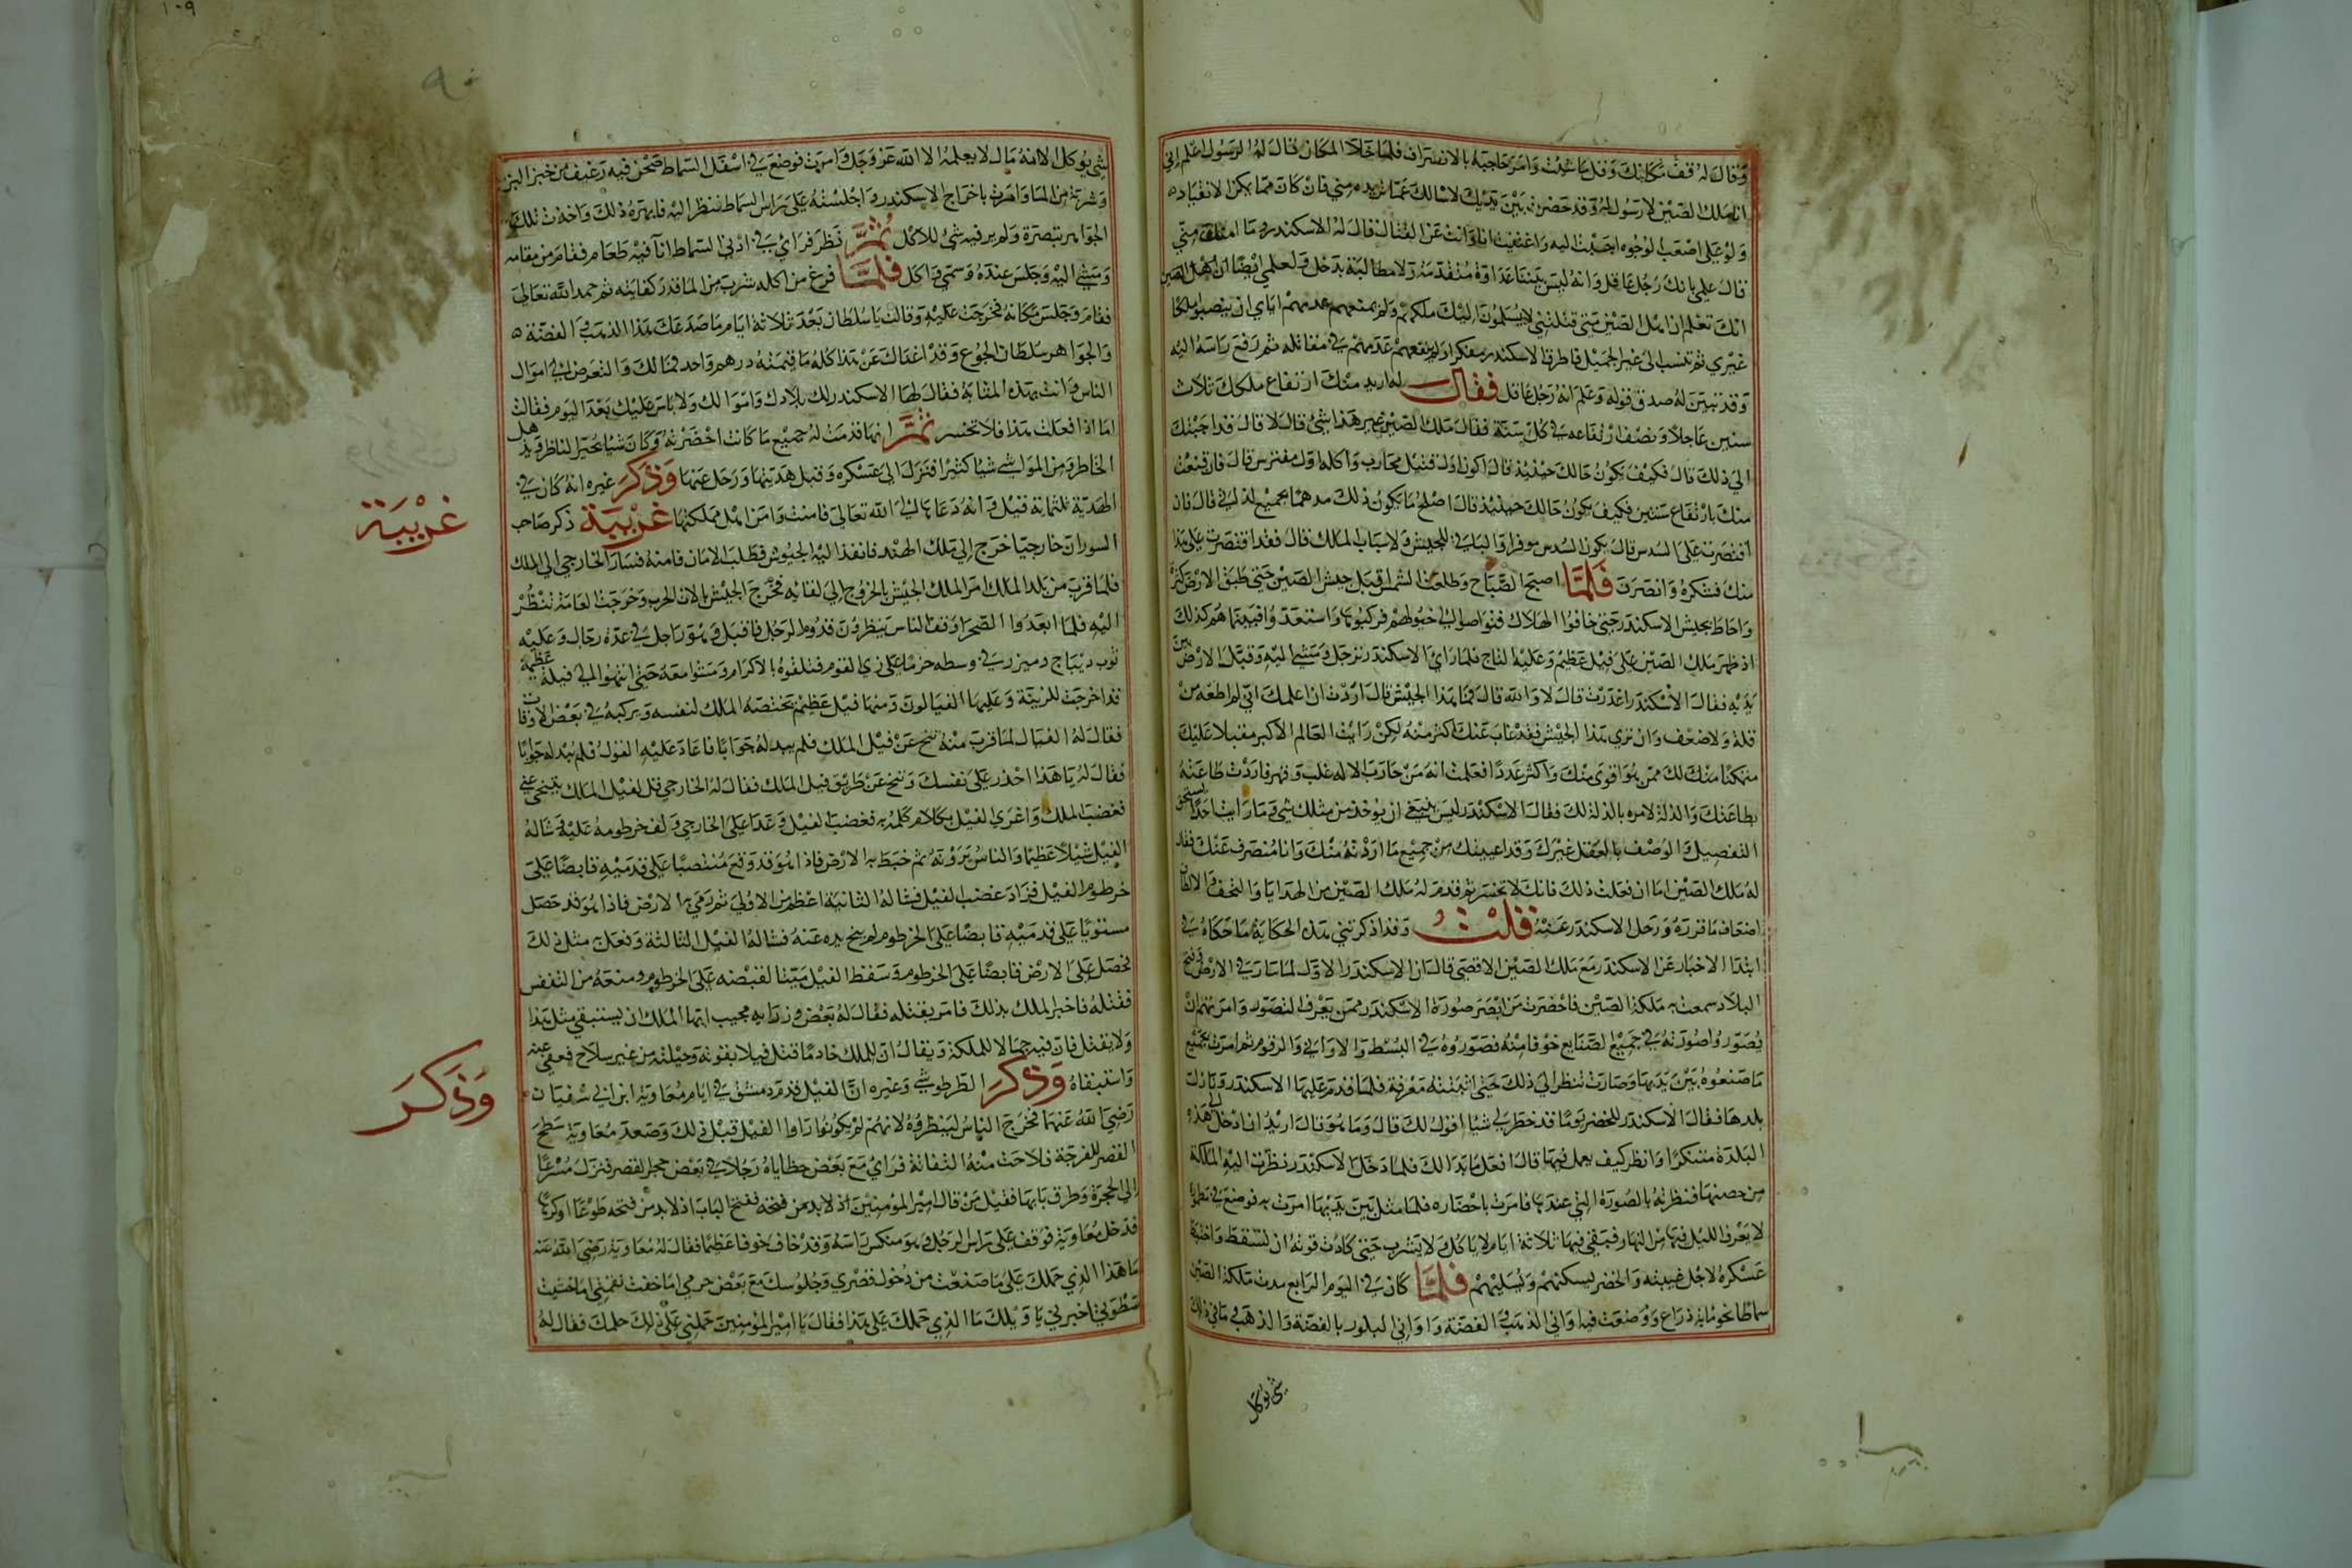 وقال له قف مكانك وقل ما شئت وامر حاجبه بالانصراف فلما خلا المكان قال له الرسول اعلم اني
انا ملك الصين لا رسول له وقد حضرت بين يديك لاسالك عما تريده مني فان كان مما يمكن الانقياد
ولو على اصعب الوجوه اجبت اليه واغتنيت انا وانت عن القتال فقال له الاسكندر وما امنك مني
قال علمي بانك رجل عاقل وانه ليس بيننا عداوة متقدمة ولا مطالبة بدخل ولعلمي ايضا ان اهل الصين
انك تعلم ان اهل الصين متى قتلتني لا يسلمون اليك ملكهم ولم يمنعهم عدمهم اياي ان ينصبوا ملكا
غيري ثم تنسب الى غير الجميل فاطرق الاسكندر مفكرا ثم رفع راسه اليه
وقد تبين له صدق قوله وعلم انه رجل عاقل فقال له اريد منك ارتفاع ملكك ثلاث
سنين عاجلا ونصف ارتفاعه في كل سنة فقال ملك الصين غير هذا شئ قال لا قال قد اجبتك
الى ذلك قال فكيف تكون حالك حينئذ قال اكون اول قتيل محارب واكلة اول مفترس قال فان قنعت
منك بارتفاع سنتين فكيف يكون حالك حينئذ قال اصلح ما يكون ذلك مدهما بجميع لذاتي قال فان
اقتصرت على السدس قال يكون السدس موفرا والباقي للجيش ولاسباب الملك قال فقد اقتصرت على هذا
منك فشكره وانصرف فلما اصبح الصباح وطلعت الشمس اقبل جيش الصين حتى طبق الارض كثرة
واحاط بجيش الاسكندر حتى خافوا الهلاك فتواصوا الى خيولهم فركبوها واستعدوا فبينما هم كذلك
اذ ظهر ملك الصين على فيل عظيم وعليه التاج فلما راى الاسكندر ترجل ومشى اليه وقبل الارض بين
يديه فقال الاسكندر اغدرت قال لا والله قال فما هذا الجيش قال اردت ان اعلمك اني لم اطعك من
قلة ولا ضعف وان ترى هذا الجيش فقد غاب عنك اكثر منه لكن رايت العالم الاكبر مقبلا عليك
ممكنا منك لك ممن هو اقوى منك واكثر عددا فعلمت انه من حارب الاله غلب وقهر فاردت طاعته
بطاعتك والذلة لامره بالذلة لك فقال الاسكندر ليس ينبغي ان يوخذ من مثلك شئ فما رايت احدا يستحق
التفضيل والوصف بالعقل غيرك وقد اعفيتك من جميع ما اردته منك وانا منصرف عنك فقال
له ملك الصين اما ان فعلت ذلك فانك لا تخسر ثم قدم له ملك الصين من الهدايا والتحف والالطاف
اضعاف ما قرره ورحل الاسكندر عنه قلت وقد اذكرتني هذه الحكاية ما حكاه في
ابتدا الاخبار عن الاسكندر مع ملك الصين الاقصى قال ان الاسكندر الاول لما سار في الارض وفتح
البلاد سمعت به ملكة الصين فاحضرت من ابصر صورة الاسكندر ممن يعرف التصوير وامرتهم ان
يصوروا صورته في جميع الصنايع خوفا منه فصوروه في البسط والاواني والرقوم ثم امرت بجميع
ما صنعوه بين يديها وصارت تنظر الى ذلك حتى اثبتته معرفة فلما قدم عليها الاسكندر ونازل
بلدها فقال الاسكندر للخضر يوما قد خطر لي شئ اقول لك قال وما هو قال اريد ان ادخل الى هذه
البلدة متنكرا وانظر كيف يعمل فيها قال افعل ما بدا لك فلما دخل الاسكندر نظرت اليه الملكة
من حصنها فنظرته بالصورة التي عندها فامرت باحضاره فلما مثل بين يديها امرت به فوضع في مطمورة
لا يعرف الليل فيها من النهار فبقي فيها ثلاثة ايام لا ياكل ولا يشرب حتى كادت قوته ان تسقط واختبط
عسكره لاجل غيبته والخضر يسكنهم ويسليهم فلما كان في اليوم الرابع مدت ملكة الصين
سماطا نحو ماية ذراع ووضعت فيه اواني الذهب والفضة واواني البلور بالفضة والذهب ما في ذلك
شئ يوكل
شئ يوكل الا انه مال لا يعلمه الا الله عز وجل وامرت فوضع في اسفل السماط صحن فيه رغيف من خبز البر
وشربة من الما وامرت باخراج الاسكندر واجلسته على راس السماط فنظر اليه فابهره ذلك واخذت تلك
الجواهر ببصره ولم ير فيه شئ للاكل ثم نظر فراى في ادنى السماط انآ فيه طعام فقام من مقامه
ومشى اليه وجلس عنده وسمى واكل فلما فرغ من اكله شرب من الما قدر كفايته ثم حمد الله تعالى
فقام وجلس مكانه فخرجت عليه وقالت يا سلطان بعد ثلاثة ايام ما صد عنك هذا الذهب والفضة
والجواهر سلطان الجوع وقد اغناك عن هذا كله ما قيمته درهم واحد فما لك والتعرض الى اموال
الناس وانت بهذه المثابة فقال لها الاسكندر لك بلادك واموالك ولا باس عليك بعد اليوم فقالت
اما اذا فعلت هذا فلا تخسر ثم انها قدمت له جميع ما كانت احضرته وكان شيا يحير الناظر ويذهل
الخاطر ومن المواشي شيا كثيرا فنزل الى عسكره وقبل هديتها ورحل عنها وذكر غيره انه كان في
الهدية ثلثماية فيل وانه دعاها الى الله تعالى فامنت وامن اهل مملكتها غريبة ذكر صاحب
السوران خارجيا خرج الى ملك الهند فانفذ اليه الجيوش فطلب الامان فامنه فسار الخارجي الى الملك
فلما قرب من بلد الملك امر الملك الجيش بالخروج الى لقائه فخرج الجيش بالات الحرب وخرجت العامة تنظر
اليه فلما ابعدوا الصحرا وقف الناس ينظرون قدوم الرجل فاقبل وهو راجل في عدة رجال وعليه
ثوب ديباج وميزر في وسطه حزما على زي القوم فتلقوه بالاكرام ومشوا معه حتى انتهوا الى فيلة عظيمة
قد اخرجت للزينة وعليها الفيالون ومنها فيل عظيم يختصه الملك لنفسه ويركبه في بعض الاوقات
فقال له الفيال لما قرب منه تنح عن فيل الملك فلم يبد له جوابا فاعاد عليه القول فلم يبد له جوابا
فقال له يا هذا احذر على نفسك وتنح عن طريق فيل الملك فقال له الخارجي قل لفيل الملك يتنحى عني
فغضب الملك واغرى الفيل بكلام كلمه به فغضب الفيل وعدا على الخارجي ولف خرطومه عليه وشاله
الفيل شيلا عظيما والناس يرونه ثم خبط به الارض فاذا هو قد وقع منتصبا على قدميه قابضا على
خرطوم الفيل فزاد غضب الفيل فشاله الثانية اعظم من الاولى ثم رمى به الارض فاذا هو قد حصل
مستويا على قدميه قابضا على الخرطوم لم ينح يده عنه فشاله الفيل الثالثة وفعل مثل ذلك
فحصل على الارض قابضا على الخرطوم وسقط الفيل ميتا لقبضه على الخرطوم ومنعه من التنفس
فقتله فاخبر الملك بذلك فامر بقتله فقال له بعض وزرايه يجب ايها الملك ان يستبقى مثل هذا
ولا يقتل فان فيه جمالا للملكة ويقال ان للملك خادما قتل فيلا بقوته وحيلته من غير سلاح فعفى عنه
واستبقاه وذكر الطرطوشي وغيره ان الفيل قدم دمشق في ايام معاوية ابن ابي سفيان
رضي الله عنهما فخرج الناس لينظروه لانهم لم يكونوا راوا الفيل قبل ذلك وصعد معاوية سطح
القصر للفرجة فلاحت منه التفاتة فراى مع بعض حظاياه رجلا في بعض حجر القصر فنزل مسرعا
الى الحجرة وطرق بابها فقيل من قال امير المؤمنين اذ لا بد من فتحه ففتح الباب اذ لا بد من فتحه طوعا او كرها
فدخل معاوية فوقف على راس الرجل وهو منكس راسه وقد خاف خوفا عظيما فقال له معاوية رضي الله عنه
ما هذا الذي حملك على ما صنعت من دخول قصري وجلوسك مع بعض حرمي اما خفت نقمتي اما خشيت
سطوتي اخبرني يا ويلك ما الذي حملك على هذا فقال يا امير المؤمنين حملني على ذلك حلمك فقال له
غريبة
وذكر